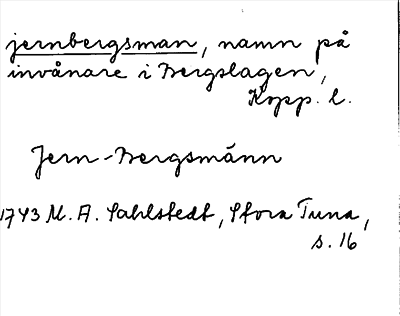 jernbergsman, namn på
invånare i Bergslagen,
Kopp. l.
Jern-Bergsmänn
1743 M. A. Sahlstedt, Stora Tuna,
s. 16